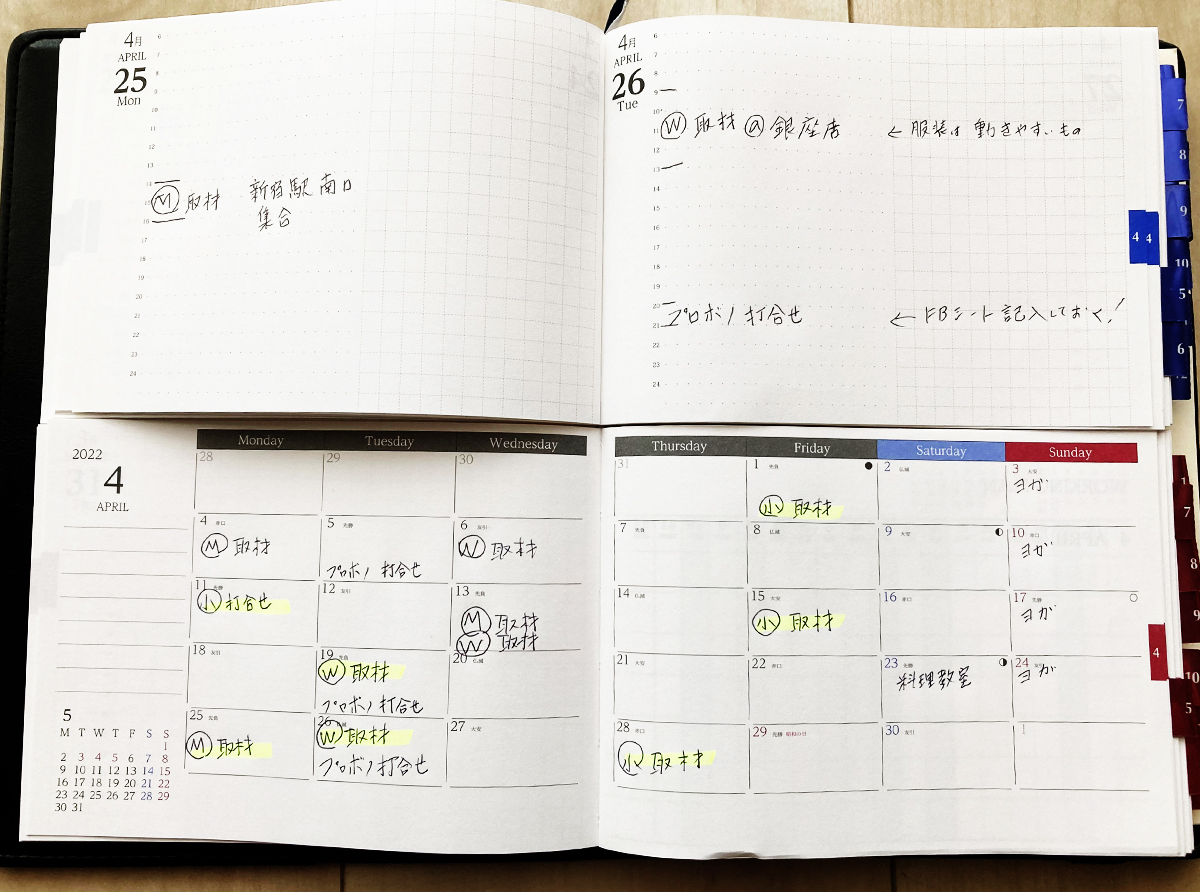 4月
APRIL
25
Mon
6
7
8
9
10
11
12
13
14
Ⓜ 取材 新宿駅 南口
集合
16
17
18
19
20
21
22
23
24
4月
APRIL
26
Tue
6
7
8
9
10
11
Ⓦ 取材 @ 銀座店 ← 服装は動きやすいもの
12
13
14
15
16
17
18
19
20
プロボノ 打合せ ← FBシート記入しておく!
21
22
23
24
7
8
9
10
4 4
5
6
2022
4
APRIL
Monday Tuesday Wednesday Thursday Friday Saturday Sunday
28 29 30 31 1 先負 2 仏滅 3 大安
㊙小 取材 ヨガ
4 赤口 5 先勝 6 友引 7 先負 8 仏滅 9 大安 10 赤口
Ⓜ 取材 プロボノ 打合せ Ⓦ 取材 ヨガ
11 先勝 12 友引 13 先負 14 仏滅 15 大安 16 赤口 17 先勝
小 打合せ Ⓜ 取材 小 取材 ヨガ
Ⓦ 取材
18 友引 19 先負 20 仏滅 21 大安 22 赤口 23 先勝 24 友引
Ⓦ 取材 料理教室 ヨガ
プロボノ 打合せ
25 先負 26 仏滅 27 大安 28 赤口 29 先勝 昭和の日 30 友引 1
Ⓜ 取材 Ⓦ 取材 小 取材
プロボノ 打合せ
5
M T W T F S S
1
2 3 4 5 6 7 8
9 10 11 12 13 14 15
16 17 18 19 20 21 22
23 24 25 26 27 28 29
30 31
7
8
9
4
10
5